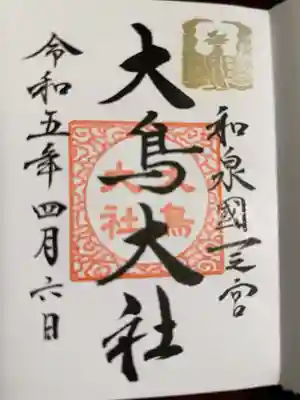 和泉國一之宮
大鳥大社
大鳥
大社
令和五年四月六日